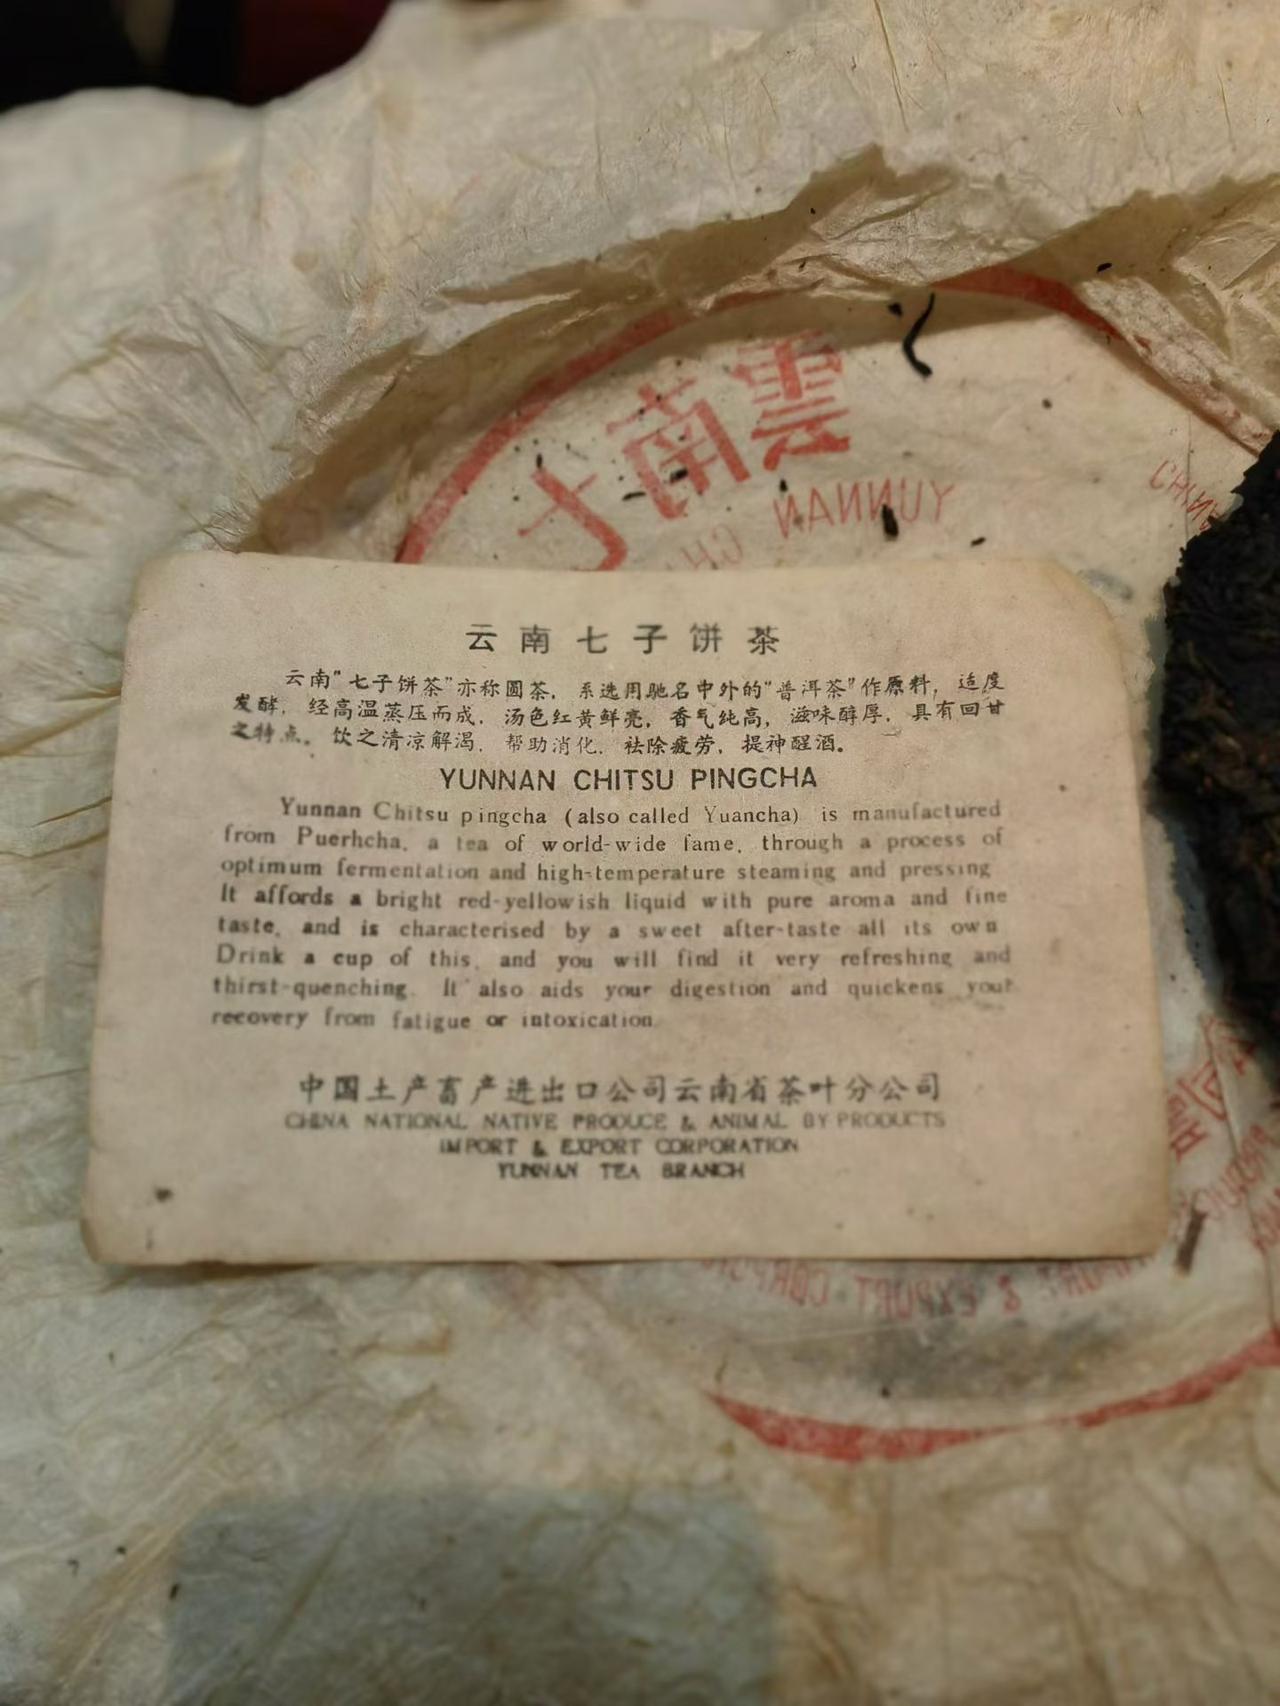 雲南七
YUNNAN CHI
CHINA
云南七子饼茶
云南"七子饼茶"亦称圆茶，系选用驰名中外的"普洱茶"作原料，适度
发酵，经高温蒸压而成，汤色红黄鲜亮，香气纯高，滋味醇厚，具有回甘
之特点。饮之清凉解渴，帮助消化，祛除疲劳，提神醒酒。
YUNNAN CHITSU PINGCHA
Yunnan Chitsu pingcha (also called Yuancha) is manufactured
from Puerhcha, a tea of world-wide fame, through a process of
optimum fermentation and high-temperature steaming and pressing
It affords a bright red-yellowish liquid with pure aroma and fine
taste, and is characterised by a sweet after-taste all its own
Drink a cup of this, and you will find it very refreshing and
thirst-quenching. It also aids your digestion and quickens your
recovery from fatigue or intoxication.
中国土产畜产进出口公司云南省茶叶分公司
CHINA NATIONAL NATIVE PRODUCE & ANIMAL BY-PRODUCTS
IMPORT & EXPORT CORPORATION
YUNNAN TEA BRANCH
IMPORT & EXPORT CORPO